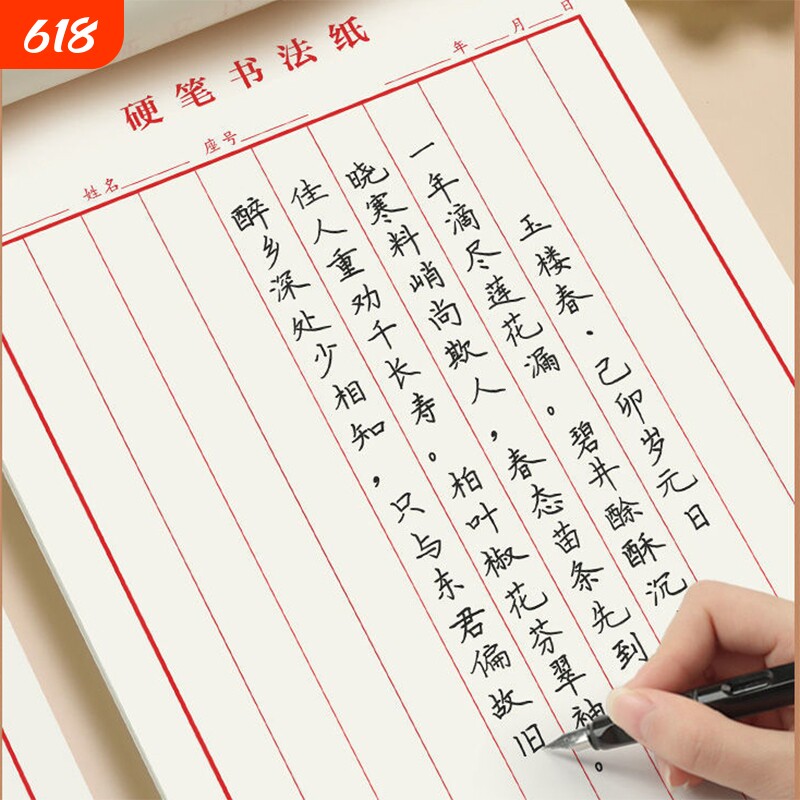 618
硬笔书法纸
姓名 座号 年 月 日
玉楼春·己卯岁元日
一年滴尽莲花漏。碧井酴酥沉
晓寒料峭尚欺人，春态苗条先到
佳人重劝千长寿。柏叶椒花芬翠袖。
醉乡深处少相知，只与东君偏故旧